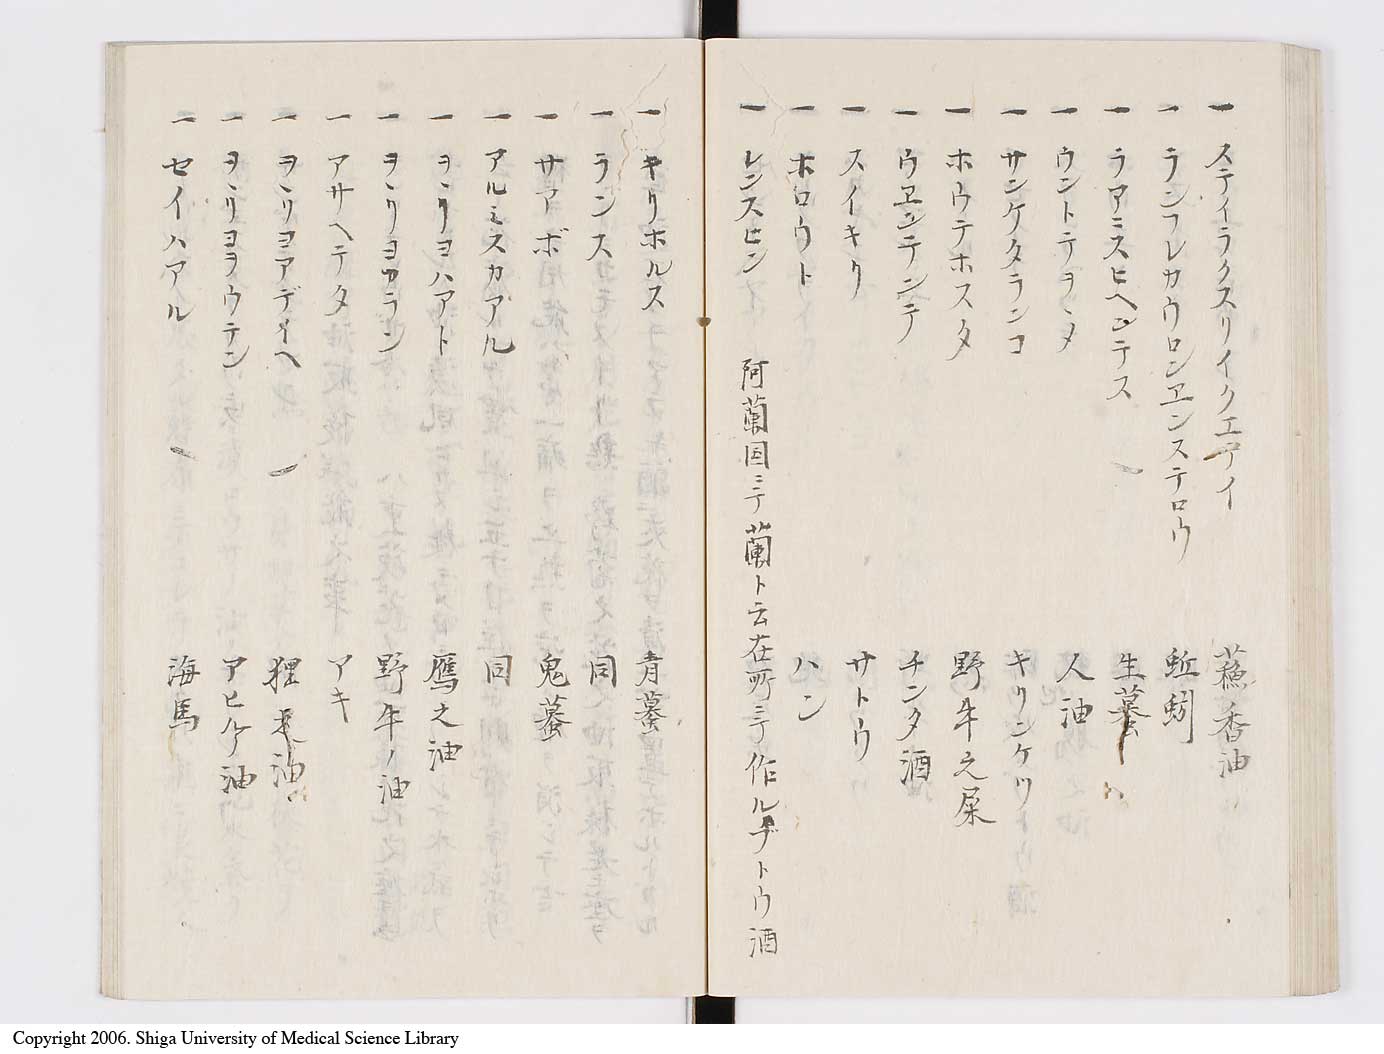 一 スティラクスリイクエテイ 蘓香油
一 ランフレカウロンヱンステロウ 蚯蚓
一 ラアミスヒヘンテス 生蟇
一 ウントテヲヽタ 人油
一 サンケタランコ キリンケツ
一 ホウテホスタ 野牛之屎
一 ウヱンテンテ チンタ酒
一 スイキリ サトウ
一 ホロウト ハン
一 レンスヒン 阿蘭国ミテ蘭ト云在所ミテ作ルブトウ酒
一 キリホルス 青蟇
一 ランス 同
一 サアボ 鬼蟇
一 アルミスカアル 同
一 ヲヽリヨハアト 鴈之油
一 ヲヽリヨカラン 野牛ノ油
一 アサヘテタ アキ
一 ヲヽリヨアデイヘ 狸 油
一 ヲヽリヨヲウテン アヒル油
一 セイハアル 海馬
Copyright 2006. Shiga University of Medical Science Library